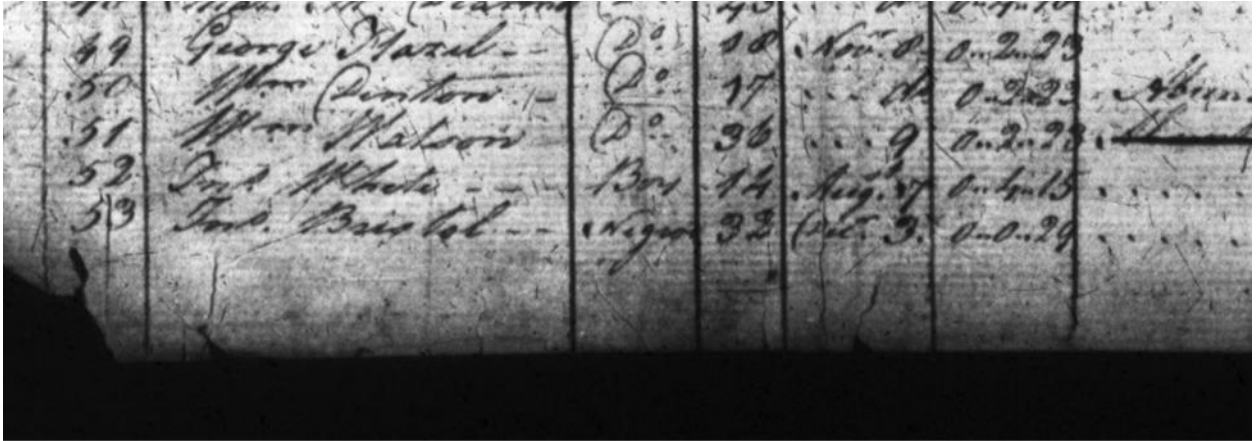 49 George Hazel -- Do. 18 Novr. 8 0..2..23
50 Wm. Dinton - Do. 17 ... do 0..2..23
51 Wm Watson Do. 36 ... 9 0..2..23
52 Jno. White --- Boy 14 Augt. 17 0..4..15 ....
53 Jno. Bristol --- Negro 32 Octr. 3. 0..0..29 ....